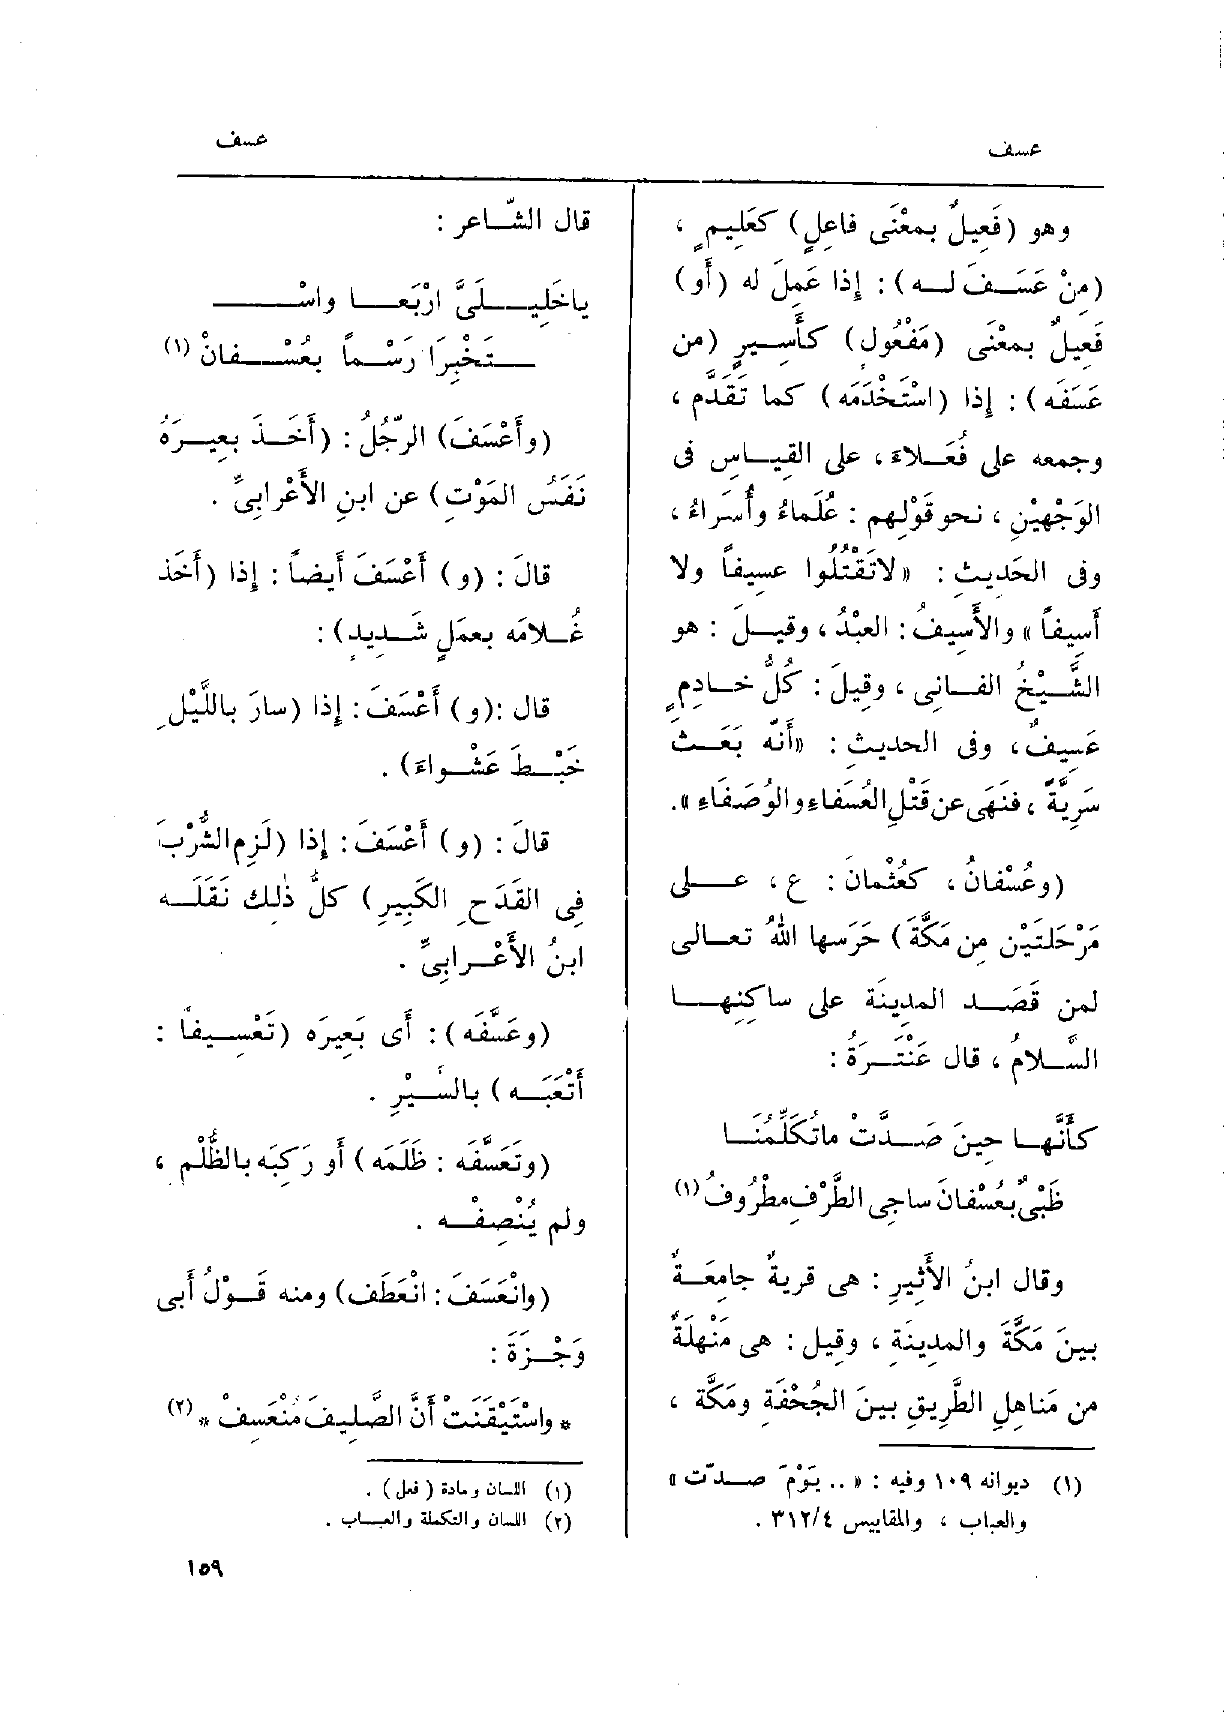 عسف
عسف
وهو (فَعِيلٌ بمعْنَى فاعِلٍ) كعَلِيمٍ ،
(مِنْ عَسَفَ لـه) : إذا عَمِلَ له (أو)
فَعِيلٌ بمعْنَى (مَفْعُولٍ) كأَسِيرٍ (من
عَسَفَه) : إذا (اسْتَخْدَمَه) كما تَقَدَّم ،
وجمعه على فُعَلاءَ ، على القِياسِ فى
الوَجْهَيْنِ ، نحو قَوْلِهم : عُلَماءُ وأُسَراءُ ،
وفى الحَدِيثِ : «لاتَقْتُلُوا عسيفاً ولا
أَسِيفاً» والأَسِيفُ : العبْدُ ، وقيلَ : هو
الشَّيْخُ الفانى ، وقيلَ : كُلُّ خادِمٍ
عَسِيفٌ ، وفى الحديثِ : «أنّه بَعَث
سَرِيَّةً ، فنَهَى عن قَتْلِ العُسَفاءِ والوُصَفاءِ».
(وعُسْفانُ ، كعُثْمانَ : ع ، على
مَرْحَلَتَيْنِ مِن مَكَّةَ) حَرَسها اللهُ تعالى
لمن قَصَد المدِينَة على ساكِنِها
السَّلامُ ، قال عَنْتَرَةُ :
كأَنَّها حِينَ صَدَّتْ ماتُكَلِّمُنَا
ظَبْىٌ بعُسْفانَ ساجِى الطَّرْفِ مطْرُوفُ (١)
وقال ابنُ الأَثِيرِ : هى قريةٌ جامِعَةٌ
بينَ مَكَّةَ والمدِينَةِ ، وقيل : هى مَنْهلَةٌ
من مَناهِلِ الطَّرِيقِ بينَ الجُحْفَةِ ومَكَّة ،
(١) ديوانه ١٠٩ وفيه : « .. يَوْمَ صدّت »
والعباب ، والمقاييس ٣١٢/٤ .
قال الشّاعر :
ياخَلِيلَىَّ ارْبَعا واسْـ
ـتَخْبِرَا رَسْماً بعُسْفانْ (١)
(وأَعْسَفَ) الرّجُلُ : (أَخَذَ بعِيرَهُ
نَفَسُ المَوْتِ) عن ابنِ الأَعْرابِىِّ .
قالَ : (و) أَعْسَفَ أَيضاً : إذا (أَخَذ
غُلامَه بعمَلٍ شَدِيدٍ) :
قال :(و) أَعْسَفَ : إذا (سارَ باللَّيْلِ
خَبْطَ عَشْواءَ) .
قالَ : (و) أَعْسَفَ : إذا (لَزِم الشُّرْبَ
فِى القَدَحِ الكَبِيرِ) كلُّ ذٰلِك نَقَلَه
ابنُ الأَعْرابِىِّ .
(وعَسَّفَه) : أَى بَعِيرَه (تَعْسِيفاً :
أَتْعَبَه) بالسَّيْرِ .
(وتَعَسَّفَه : ظَلَمَه) أو رَكِبَه بالظُّلْمِ ،
ولم يُنْصِفْه .
(وانْعَسَفَ : انْعَطَف) ومنه قَوْلُ أَبى
وَجْزَةَ :
* واسْتَيْقَنَتْ أَنَّ الصَّلِيفَ مُنْعَسِفْ * (٢)
(١) اللسان ومادة (فعل) .
(٢) اللسان والتكملة والعباب .
١٥٩